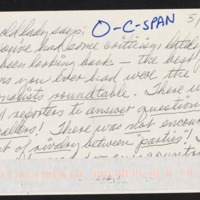 old lady says: O-C-SPAN 5/
had some writings lately
been looking back — the best
ons you ever had were the
nalists roundtable. There w
reporters to answer question
allers! There was not encou
t of rivalry between "parties"! T